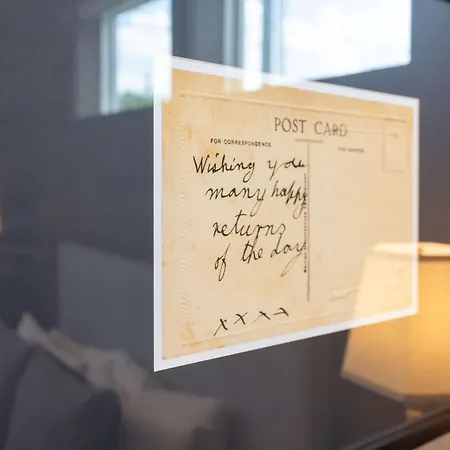 POST CARD
FOR CORRESPONDENCE
Wishing you
many happy
returns
of the day
x x x x